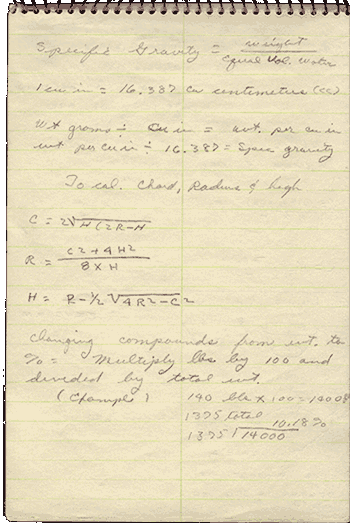 Specific Gravity = weight / equal vol. water
1 cu in = 16.387 cu centimeters (cc)
Wt grams ÷ cu in = wt. per cu in
wt per cu in ÷ 16.387 = Spec gravity
To cal. Chord, Radius & high
C = 2√H(2R-H
R = C²+4H² / 8XH
H = R-½√4R²-C²
Changing compounds from wt. to
% = Multiply lbs by 100 and
divided by total wt.
(Example) 140 lbs X 100 = 14000
1375 total
10.18%
1375 ⟌14000